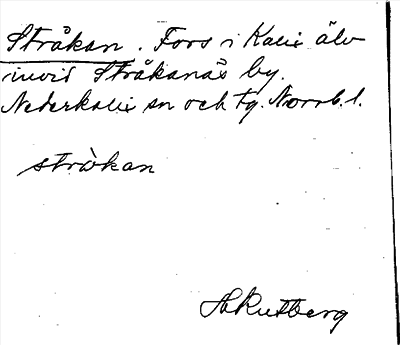 Stråkan. Fors i Kalix älv
invid Stråkanäs by.
Nederkalix sn och tg. Norrb. l.
stràkan
H Rutberg